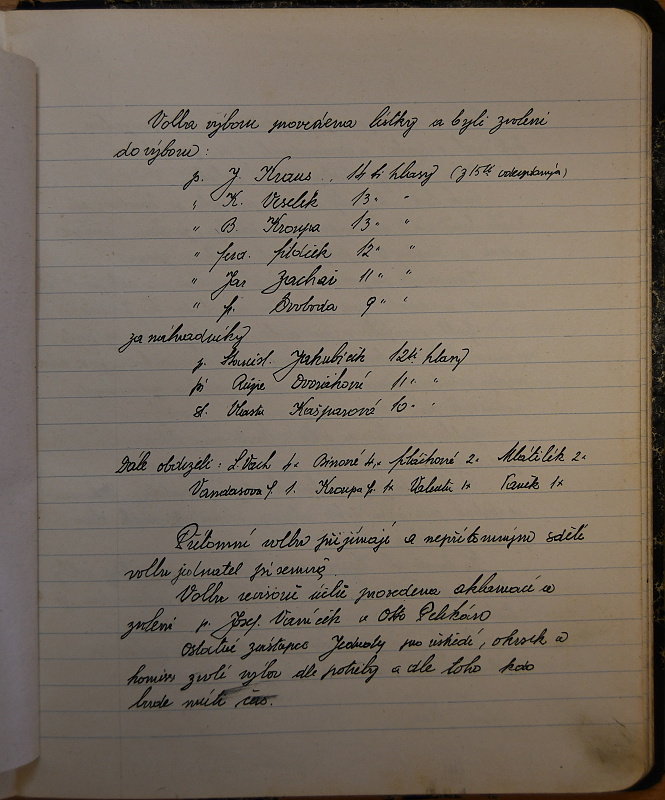 Volba výboru provedena lístky a byli zvoleni
do výboru:
p. J. Kraus 14ti hlasy (z 15ti odevzdaných)
" K. Veselík 13 " "
" B. Kroupa 13 " "
" ferd. 12 " "
" Jar Zachař 11 " "
" f. Svoboda 9 " "
za náhradníky
p. Stanisl. Jakubíček 12ti hlasy
pí Růže Dvořáková 11 " "
sl. Vlasta Kašparová 10 " "
Dále obdrželi: L. Vach 4x Bínová 4x 2x 2x
Vandasova f. 1. Kroupa f. 1x Valenta 1x Vaněk 1x
Přítomní volbu přijímají a nepřítomným sdělí
volbu jednatel písemně.
Volba revisorů účtů provedena aklamací a
zvoleni p. Josef Vaníček a Otto Pelikán
Ostatní zástupce Jednoty pro ústředí, okrsek a
komise zvolí výbor dle potřeby a dle toho kdo
bude míti čas.